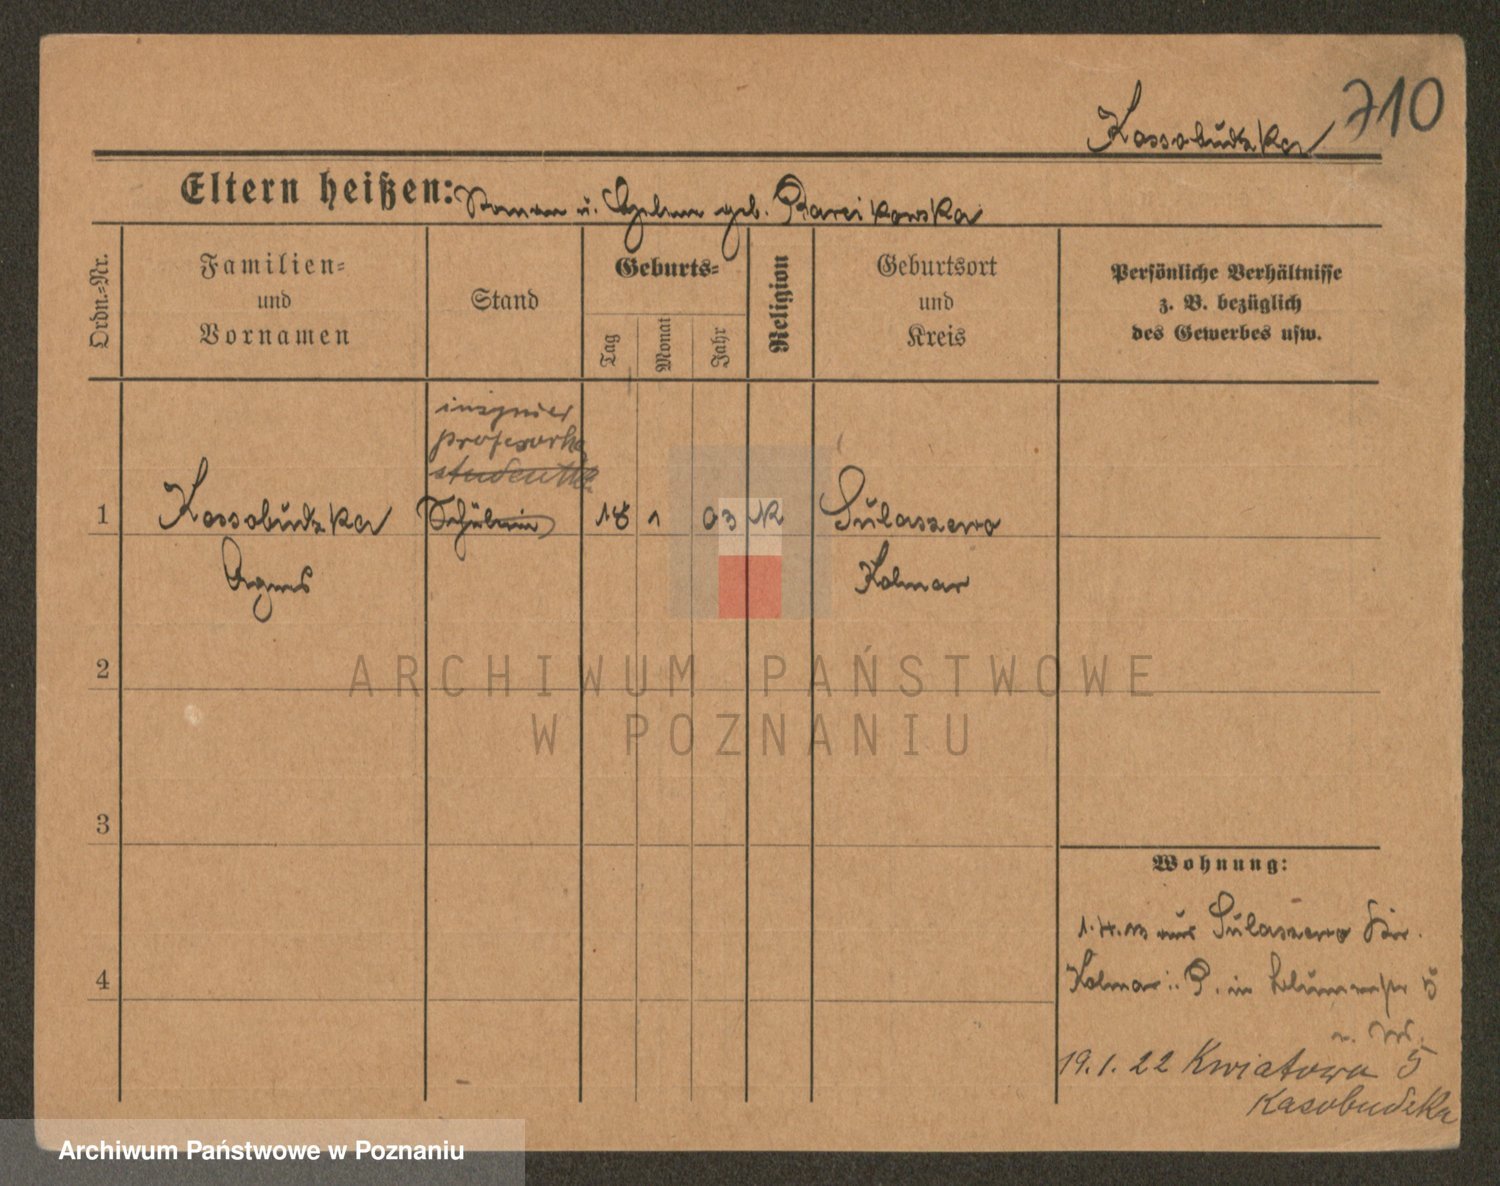 710
Kossobudzka
Eltern heißen: Roman u. geb.
Ordn.-Nr.
Familien-
und
Vornamen
Stand
Geburts-
Tag
Monat
Jahr
Religion
Geburtsort
und
Kreis
Persönliche Verhältnisse
z. B. bezüglich
des Gewerbes usw.
profesorka
studentka
1 Kossobudzka Schülerin 18 1 03 K Sulaszewo
Agnes Kolmar
2
3
4
Wohnung:
aus Sulaszewo
Kolmar i. P. in 5
19.1.22 Kwiatowa 5
Kasobudzka
ARCHIWUM PAŃSTWOWE
W POZNANIU
Archiwum Państwowe w Poznaniu